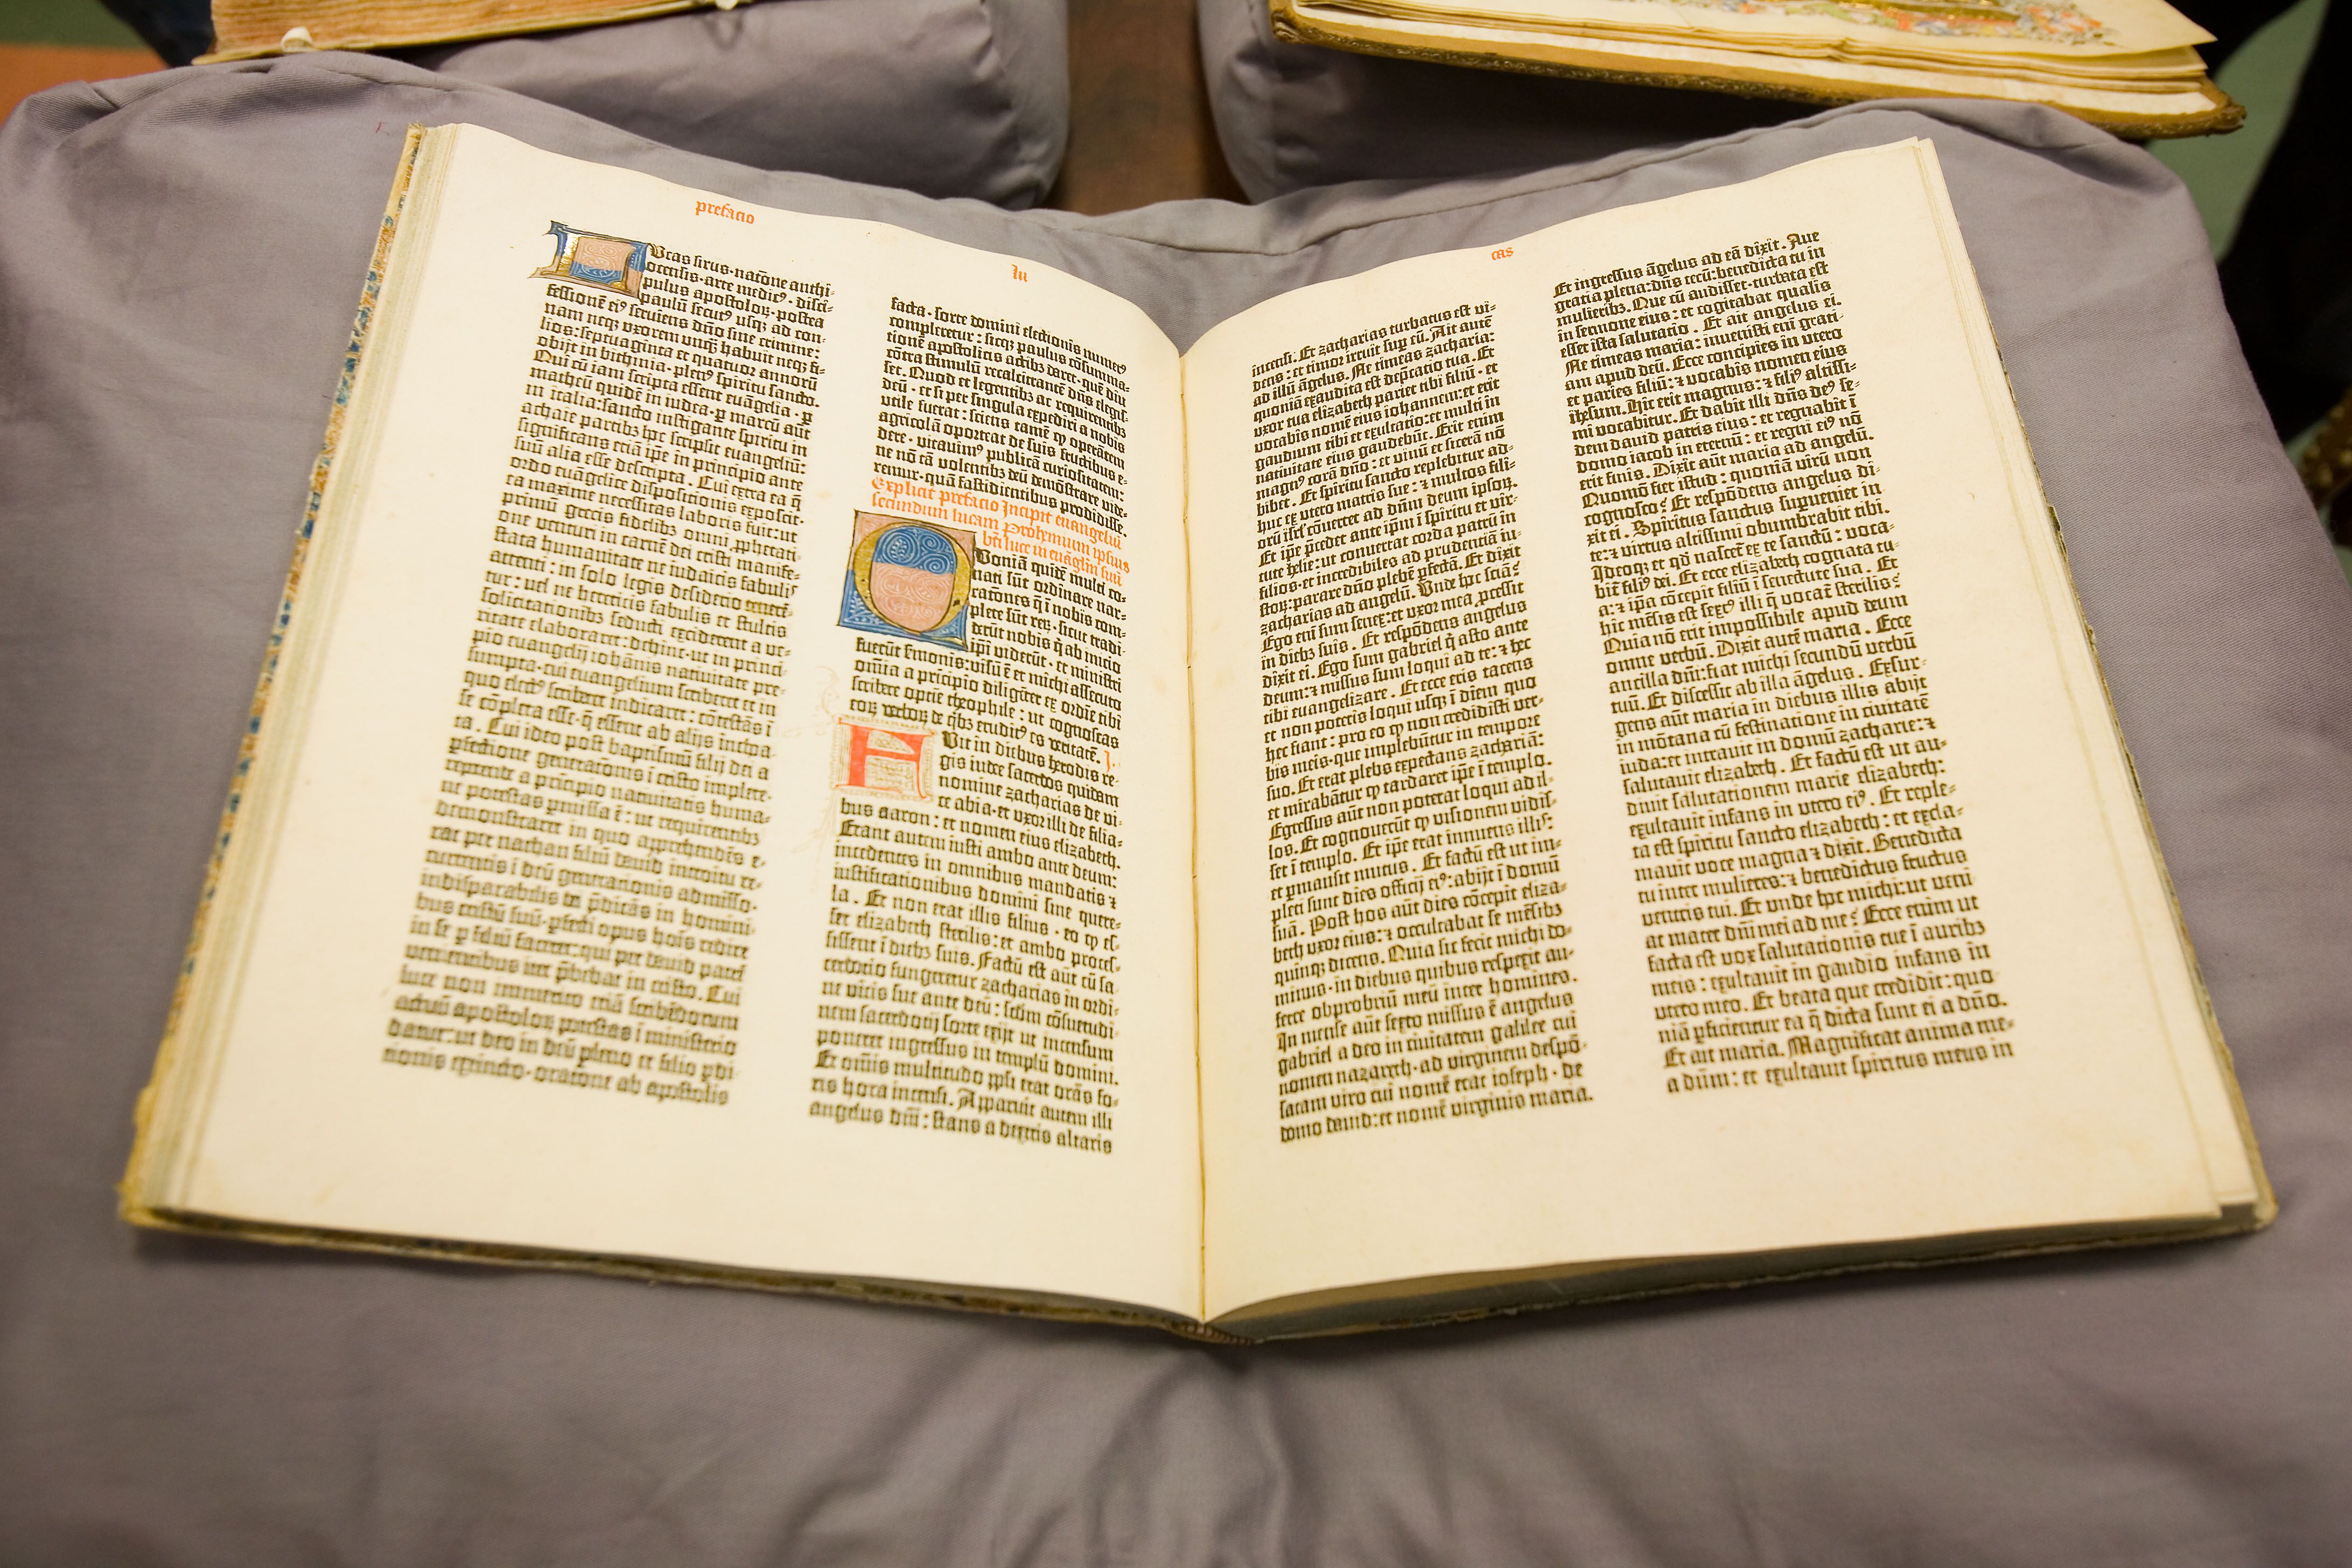 prefacio
Lucas sirus · natōne anthi-
ocensis · arte medicꝰ · disci-
pulus apostoloꝝ · postea
paulū secutꝰ usqꝫ ad con-
fessionē eiꝰ serviens dn̄o sine crimine:
nam neqꝫ vxorem unqᷓ habuit neqꝫ fi-
lios: septuaginta et quatuor annorū
obijt in bithinia · plenꝰ spiritu sancto.
Qui cū iam scripta essent euāgelia · ꝑ
matheū quidē in iudea · ꝑ marcū aūt
in italia: sancto instigante spiritu in
achaie partibꝫ hoc scripsit euangeliū:
significans etiā ip̄e in principio ante
suū alia esse descripta. Cui extra ea q̄
ordo euāgelice dispositionis exposcit ·
ea maxime necessitas laboris fuit: ut
primū grecis fidelibꝫ omni ꝓphetati-
one venturi in carnē dei cristi manife-
stata humanitate ne iudaicis fabulis
attenti: in solo legis desiderio tenerē-
tur: uel ne hereticis fabulis et stultis
solicitationibꝫ seducti exciderent a ve-
ritate elaboraret: dehinc · ut in princi-
pio euangelij iohānis natiuitate pre-
sumpta · cui euangelium scriberet et in
quo electꝰ scriberet indicaret: cōtestās ī
se cōpleta esse · q̄ essent ab alijs inchoa-
ta. Cui ideo post baptismū filij dei a
ꝑfectione generatōnis ī cristo implete ·
repetende a prīcipio natiuitatis huma-
ne potestas ꝑmissa ē: ut requirentibꝫ
demonstraret in quo apprehendēs e-
rat per nathan filiū dauid introitu re-
currentis ī deū generationis admisso ·
indisparabilis dei p̄dicās in homini-
bus cristū suū · ꝑfecti opus hoīs redire
in se ꝑ filiū faceret: qui per dauid patrē
venientibus iter p̄bebat in cristo. Cui
luce non immerito etiā scribēdorum
actuū apostoloꝝ potestas ī ministerio
datur: ut deo in deū pleno et filio ꝓdi-
tionis extincto · oratione ab apostolis
lu
facta · sorte domini electionis numerꝰ
compleretur: sicqꝫ paulus cōsumma-
tionē apostolicis actibꝫ daret · quē diu
cōtra stimulū recalcitrantē dn̄s elegis-
set. Quod et legentibꝫ ac requirentibꝫ
deū · et si per singula expediri a nobis
vtile fuerat: sciens tamē ꝙ operātem
agricolā oporteat de suis fructibus e-
dere · vitauimꝰ publicā curiositatem:
ne nō tā volentibꝫ deū demōstrare vide-
remur · quā fastidientibus prodidisse.
Explicit prefacio Incipit euangeliū
secundum lucam Prohemium ipsius
bti luce in euāgliū suū
Quoniā quidē multi co-
nati sūt ordinare nar-
ratōnes q̄ ī nobis com-
plete sūt reꝝ · sicut tradi-
derūt nobis q̄ ab inicio
ipī viderūt · et ministri
fuerūt sermonis: visū ē et michi assecuto
om̄ia a prīcipio diligēter ex ordīe tibi
scribere optīe theophile: ut cognoscas
eoꝝ verboꝝ de qͥbꝫ eruditꝰ es veritatē. I.
Fuit in diebus herodis re-
gis iudee sacerdos quidam
nomine zacharias de vi-
ce abia · et vxor illi de filia-
bus aaron: et nomen eius elizabeth.
Erant autem iusti ambo ante deum:
incedentes in omnibus mandatis ⁊
iustificationibus domini sine quere-
la. Et non erat illis filius · eo ꝙ es-
set elizabeth sterilis: et ambo proces-
sissent ī diebꝫ suis. Factū est aūt cū sa-
cerdotio fungeretur zacharias in ordi-
ne vicis sue ante deū: scd̄m cōsuetudi-
nem sacerdotij sorte exijt ut incensum
poneret ingressus in templū domini.
Et om̄is multitudo ꝓpli erat orās fo-
ris hora incensi. Apparuit autem illi
angelus dn̄i: stans a dextris altaris
cas
incensi. Et zacharias turbatus est vi-
dens: et timor irruit suꝑ eū. Ait autē
ad illū āgelus. Ne timeas zacharia:
quoniā exaudita est dep̄catio tua. Et
vxor tua elizabeth pariet tibi filiū · et
vocabis nomē eius iohannem: et erit
gaudium tibi et exultacio: et multi in
natiuitate eius gaudebūt. Erit enim
magnꝰ corā dn̄o: et vinū et sicerā nō
bibet. Et spiritu sancto replebitur ad-
huc ex vtero matris sue: ⁊ multos fili-
orū isrl̄ cōuertet ad dn̄m deum ipsoꝝ.
Et ip̄e p̄cedet ante ip̄m ī spiritu et vir-
tute helie: ut conuertat corda patrū in
filios · et incredibiles ad prudentiā iu-
stoꝝ: parare dn̄o plebē ꝑfectā. Et dixit
zacharias ad angelū. Vnde hoc sciā?
Ego enī sum senex: et vxor mea ꝓcessit
in diebꝫ suis. Et respōdens angelus
dixit ei. Ego sum gabriel q̄ asto ante
deum: ⁊ missus sum loqui ad te: ⁊ hec
tibi euangelizare. Et ecce eris tacens
et non poteris loqui usqꝫ ī diem quo
hec fiant: pro eo ꝙ non credidisti ver-
bis meis · que implebūtur in tempore
suo. Et erat plebs expectans zachariā:
et mirabātur ꝙ tardaret ip̄e ī templo.
Egressus aūt non poterat loqui ad il-
los. Et cognouerūt ꝙ visionem vidis-
set ī templo. Et ip̄e erat innuens illis:
et ꝑmansit mutus. Et factū est ut im-
pleti sunt dies officij eiꝰ: abijt ī domū
suā. Post hos aūt dies cōcepit eliza-
beth vxor eius: ⁊ occultabat se mēsibꝫ
quinqꝫ dicens. Quia sic fecit michi do-
minus · in diebus quibus respexit au-
ferre obprobriū meū inter homines.
In mense aūt sexto missus ē angelus
gabriel a deo in ciuitatem galilee cui
nomen nazareth · ad virginem despō-
satam viro cui nomē erat ioseph · de
domo dauid: et nomē virginis maria.
Et ingressus āgelus ad eā dixit. Aue
gratia plena: dn̄s tecū: benedicta tu in
mulieribꝫ. Que cū audisset · turbata est
in sermone eius: et cogitabat qualis
esset ista salutatio. Et ait angelus ei.
Ne timeas maria: inuenisti enī grati-
am apud deū. Ecce concipies in vtero
et paries filiū: ⁊ vocabis nomen eius
ihesum. Hic erit magnus: ⁊ filiꝰ altissi-
mi vocabitur. Et dabit illi dn̄s deꝰ se-
dem dauid patris eius: et regnabit ī
domo iacob in eternū: et regni eiꝰ nō
erit finis. Dixit aūt maria ad angelū.
Quomō fiet istud: quoniā virū non
cognosco? Et respōdens angelus di-
xit ei. Spiritus sanctus suꝑueniet in
te: ⁊ virtus altissimi obumbrabit tibi.
Ideoqꝫ et qd̄ nascet̄ ex te sanctū: voca-
bit̄ filiꝰ dei. Et ecce elizabeth cognata tu-
a: ⁊ ip̄a cōcepit filiū ī senectute sua. Et
hic mēsis est sextꝰ illi q̄ vocat̄ sterilis:
Quia nō erit impossibile apud deum
omne verbū. Dixit autē maria. Ecce
ancilla dn̄i: fiat michi secundū verbū
tuū. Et discessit ab illa āgelus. Exsur-
gens aūt maria in diebus illis abijt
in mōtana cū festinatione in ciuitatē
iuda: et intrauit in domū zacharie: ⁊
salutauit elizabeth. Et factū est ut au-
diuit salutationem marie elizabeth:
exultauit infans in vtero eiꝰ. Et reple-
ta est spiritu sancto elizabeth: et excla-
mauit voce magna ⁊ dixit. Benedicta
tu inter mulieres: ⁊ benedictus fructus
ventris tui. Et vnde hoc michi: ut veni-
at mater dn̄i mei ad me? Ecce enim ut
facta est vox salutacionis tue ī auribꝫ
meis: exultauit in gaudio infans in
vtero meo. Et beata que credidit: quo-
niā ꝑficientur ea q̄ dicta sunt ei a dn̄o.
Et ait maria. Magnificat anima me-
a dn̄m: et exultauit spiritus meus in